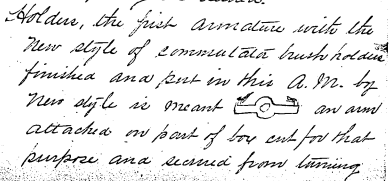 Holders, the first armature with the
New style of commutator brush holder
finished and put in this A.M. by
New style is meant an arm
attached on part of box cut for that
purpose and secured from turning